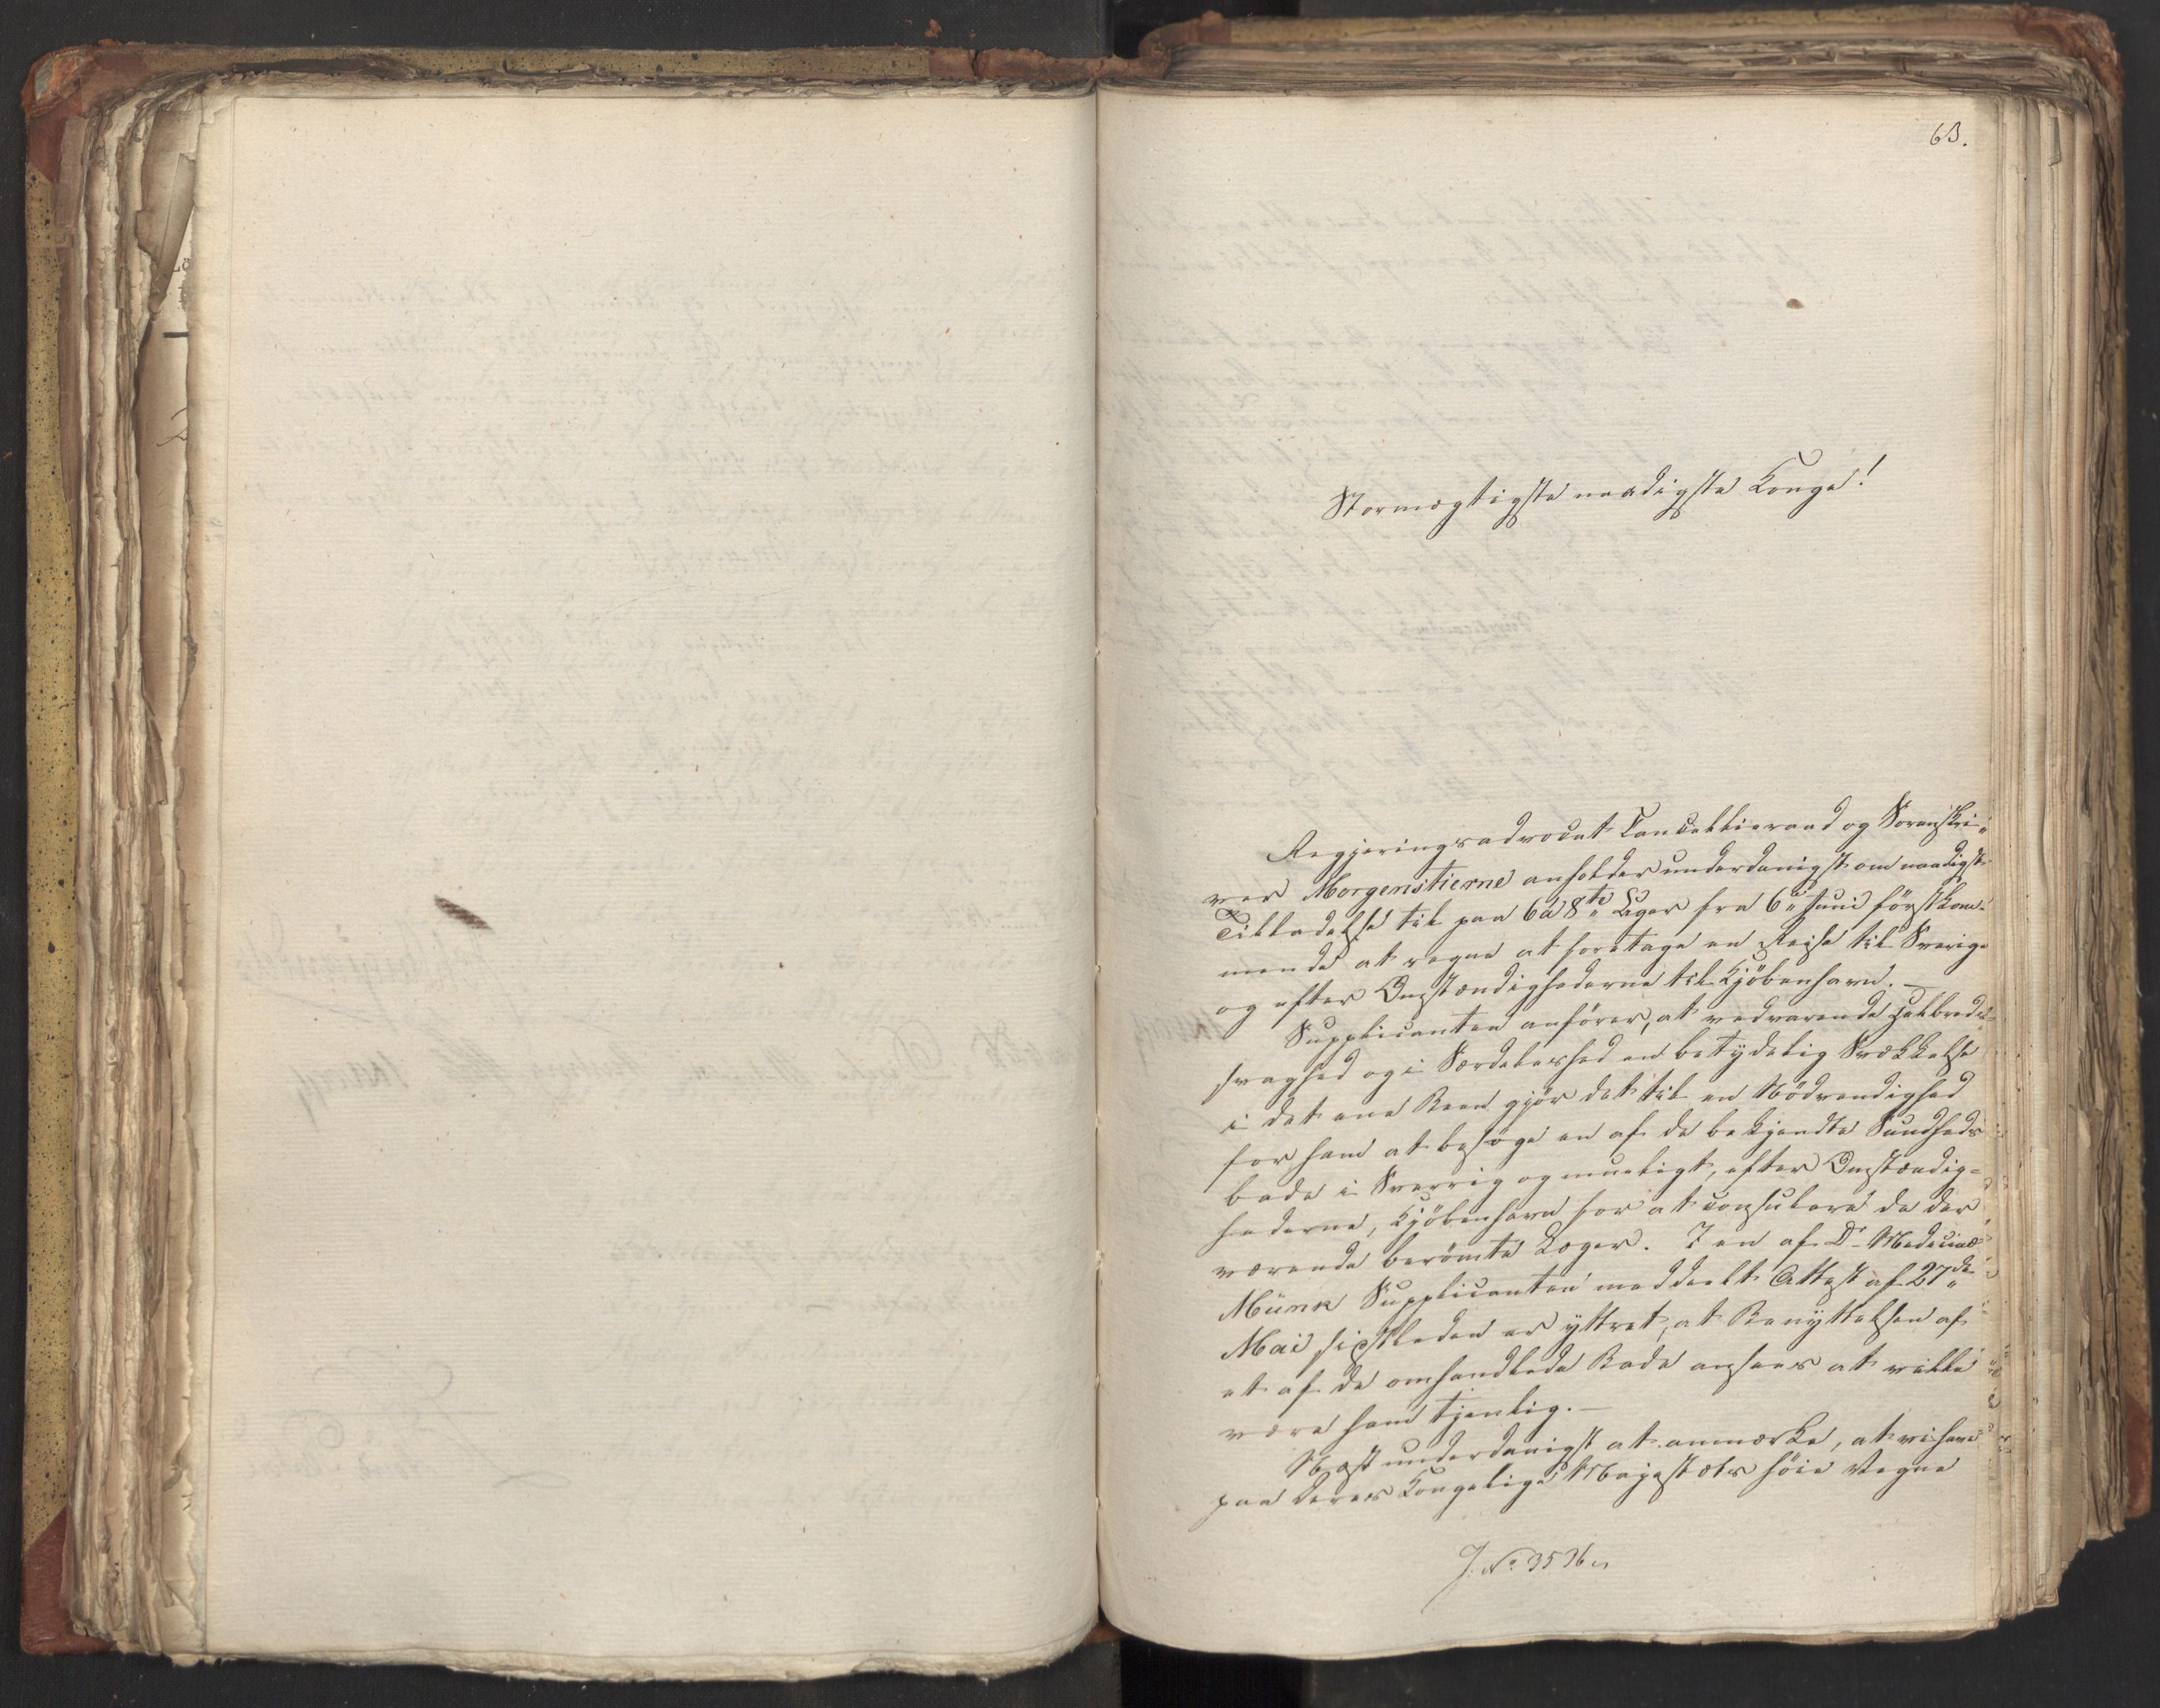 63.
Stormægtigste naadigste Konge!
Regjeringsadvocat Cancelliraad og Sorenskri„
ver Morgenstierne anholder underdanigst om naadigst
Tilladelse til paa 6 à 8te Uger fra 6te Juni förstkom„
mende at regne at foretage en Reise til Sverige
og efter Omstændighederne til Kjöbenhavn. —
Supplicanten anförer, at vedvarende Helbreds„
svaghed og i Særdeleshed en betydelig Svækkelse
i det ene Been gjör det til en Nödvendighed
for ham at besöge en af de bekjendte Sundheds
bade i Sverrig og mueligt, efter Omstændig=
hederne, Kjöbenhavn for at consulere de der
værende berömte Læger. I en af Dr Medicinæ
Münk Supplicanten meddeelt Attest af 27de
Mai sidstleden er yttret, at Benyttelsen af
et af de omhandlede Bade ansees at ville
være ham tjenlig. —
Næst underdanigst at anmærke, at vi have
paa Deres Kongelige Majestæts höie Vegne
J. No 3536